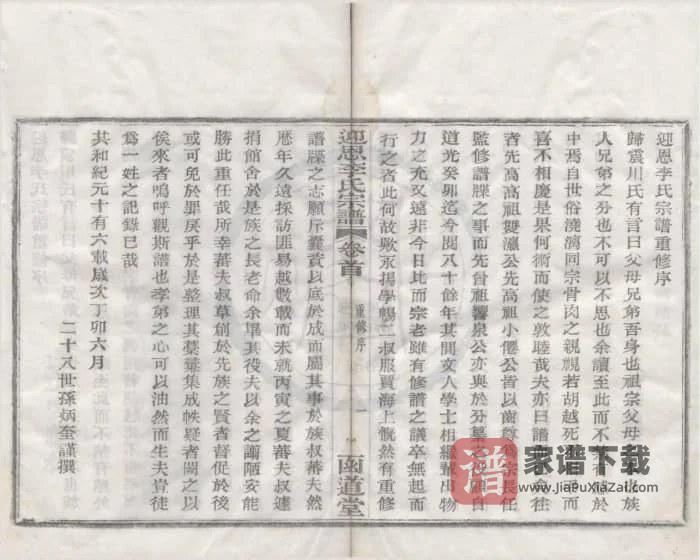 迎恩李氏宗譜重修序
歸震川氏有言曰父母兄弟吾身也祖宗父母
人兄弟之分也不可以不思也余讀至此而不
中焉自世俗澆漓同宗骨肉之親視若胡越死
喜不相慶是果何術而使之敦睦哉夫亦曰譜
者先高高祖雙瀛公先高祖小僊公皆以齒尊為宗長任
監修譜牒之事而先曾祖響泉公亦與於分纂之役顧自
道光癸卯迄今閱八十餘年其間文人學士相繼輩出物
力之充又遠非今日比而宗老雖有修譜之議卒無起而
行之者此何故歟永揚學暢二叔服賈海上慨然有重修
迎恩李氏宗譜
卷首
重修序
一
函道堂
譜牒之志願斥橐貲以底於成而屬其事於族叔蕃夫然
歷年久遠採訪匪易越數載而未就丙寅之夏蕃夫叔遽
捐館舍於是族之長老命余畢其役夫以余之谫陋安能
勝此重任哉所幸蕃夫叔草創於先族之賢者督促於後
或可免於罪戾乎於是整理其藁彙集成帙疑者闕之以
俟來者嗚呼觀斯譜也孝弟之心可以油然而生夫豈徒
為一姓之記錄已哉
共和紀元十有六載歲次丁卯六月
二十八世孫炳奎謹撰
譜
家谱下载
www.JiaPuXiaZai.com